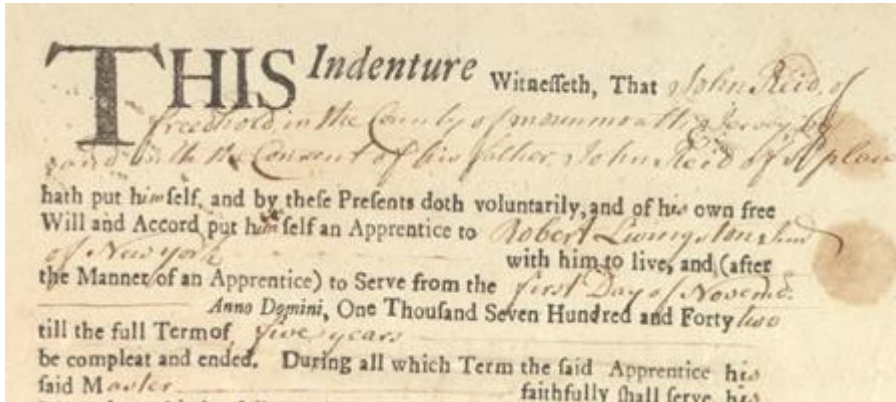 THIS Indenture Witnesseth, That John Reid, of
freehold in the County of monmouth Jersey, by
and with the Consent of his father, John Reid of sd place
hath put himself, and by these Presents doth voluntarily, and of his own free
Will and Accord put himself an Apprentice to Robert Livingston
of New York with him to live, and (after
the Manner of an Apprentice) to Serve from the first Day of Novemr.
Anno Domini, One Thousand Seven Hundred and Forty two
till the full Term of five years
be compleat and ended. During all which Term the said Apprentice his
said Master faithfully shall serve, his